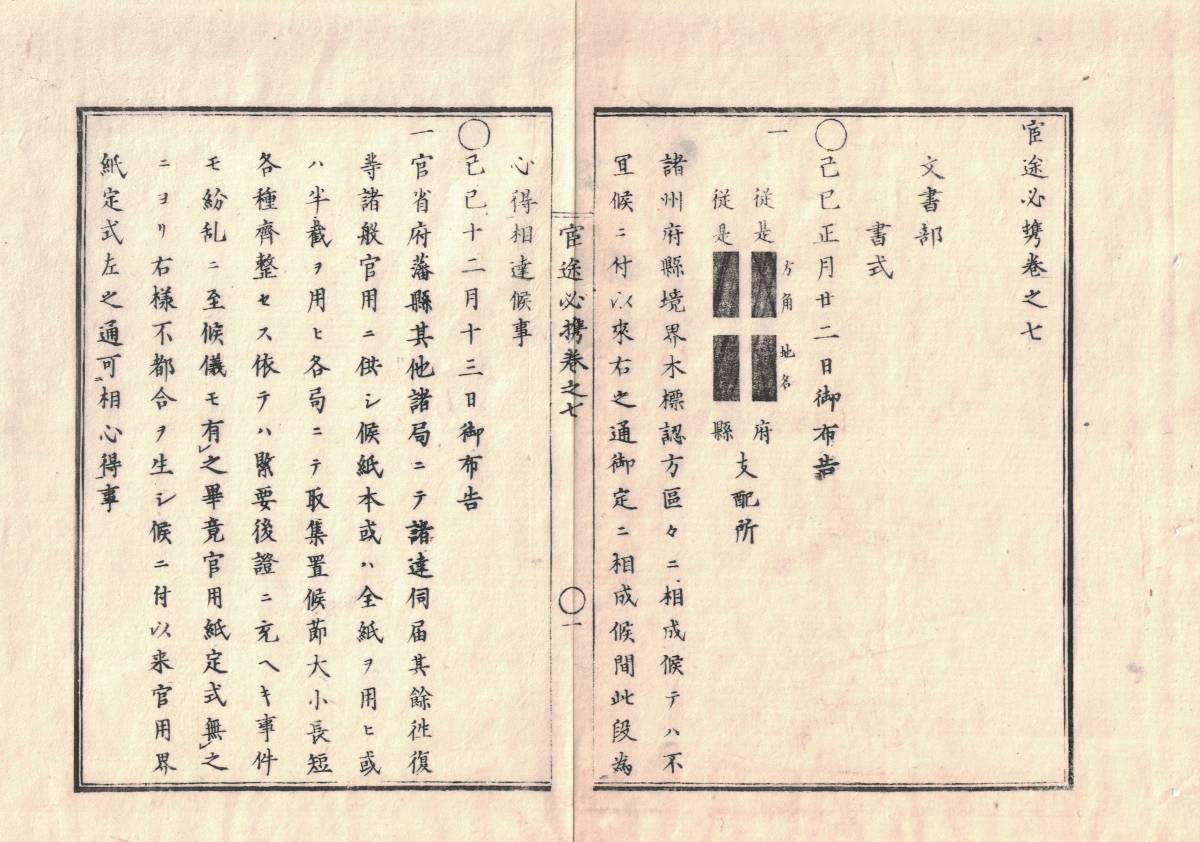 宦途必携卷之七
文書部
書式
◯己巳正月廿二日御布告
一
從是 方角 地名 府
從是 縣
支配所
諸州府縣境界木標認方區々ニ相成候テハ不
冝候ニ付以來右之通御定ニ相成候間此段為
宦途必携卷之七 ◯一
心得相達候事
◯己巳十二月十三日御布告
一官省府藩縣其他諸局ニテ諸達伺届其餘徃復
等諸般官用ニ供シ候紙本或ハ全紙ヲ用ヒ或
ハ半截ヲ用ヒ各局ニテ取集置候節大小長短
各種齊整セス依テハ緊要後證ニ充ヘキ事件
モ紛乱ニ至候儀モ有レ之畢竟官用紙定式無レ之
ニヨリ右様不都合ヲ生シ候ニ付以来官用界
紙定式左之通可二相心得一事